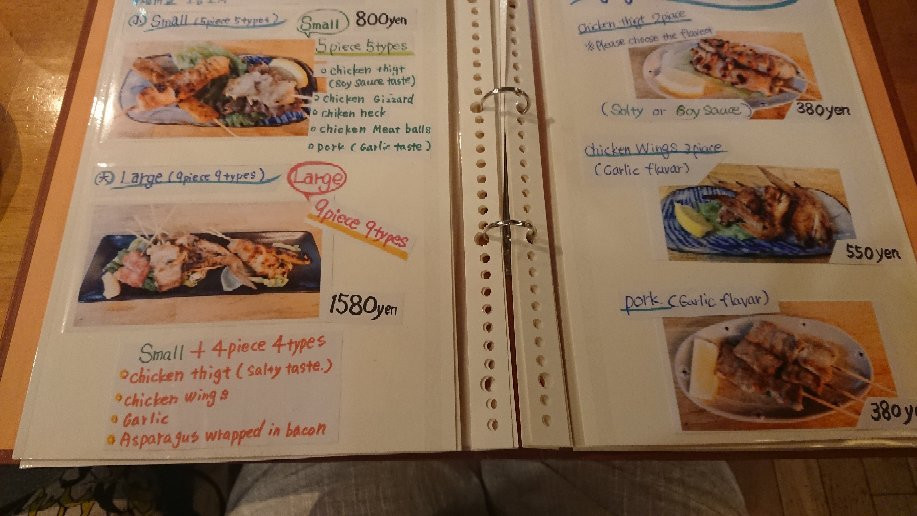 小 Small (5piece 5types)
Small 800yen
5piece 5types
chicken thigt
(Soy sauce taste)
chicken Gizzard
chiken neck
chicken Meat balls
pork (Garlic taste)
大 Large (9piece 9types)
Large
9piece 9types
1580yen
Small + 4piece 4types
chicken thigt (salty taste.)
chicken wings
Garlic
Asparagus wrapped in bacon
chicken thigt 2piace
※Please choose the flavert
(Salty or Soy Sauce) 380yen
chicken wings 2piace
(Garlic flavar)
550yen
pork (Garlic flavar)
380ye